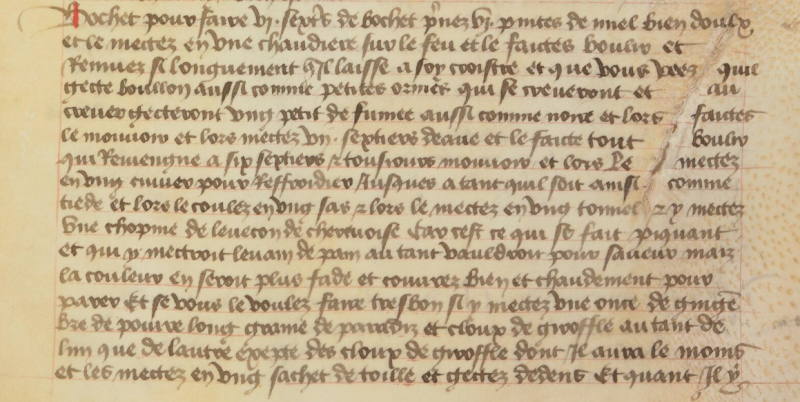 Bochet pour faire vj. sextrs de bochet prnez vj. pintes de miel bien doulx
et le mectez en vne chaudiere sur le feu et le faictes boulir et
Remuez si longuement quil laisse a soy croistre et que vous veez quil
gecte boullon aussi comme petites ormes qui se creueront et au
creuer gecteront vng petit de fumee aussi comme noire et lors faictes
le mouuoir et lors mectez vij. septiers deaue et le faicte tout boulir
qui Reuiengne a six septiers & tousiours mouuoir et lors le mectez
en vng cuuier pour Reffroidier Jusques a tant quil soit ainsi comme
tiede et lors le coulez en vng sas & lors le mectez en vng tonnel & y mectez
vne chopine de leuecon de cheruoise Car cest ce qui se fait piquant
et qui y mectroit leuain de pain autant vauldroit pour saueur maiz
la couleur en seroit plus fade et couurez bien et chaudement pour
parer Et se vous le voulez faire tresbon si y mectez vne once de gingē
bre de poiure long graine de paradiz et cloup de giroffle autant de
lun que de lautre expepte des cloup de giroffle dont Il aura le moins
et les mectez en vng sachet de toille et gectez dedens Et quant Il y